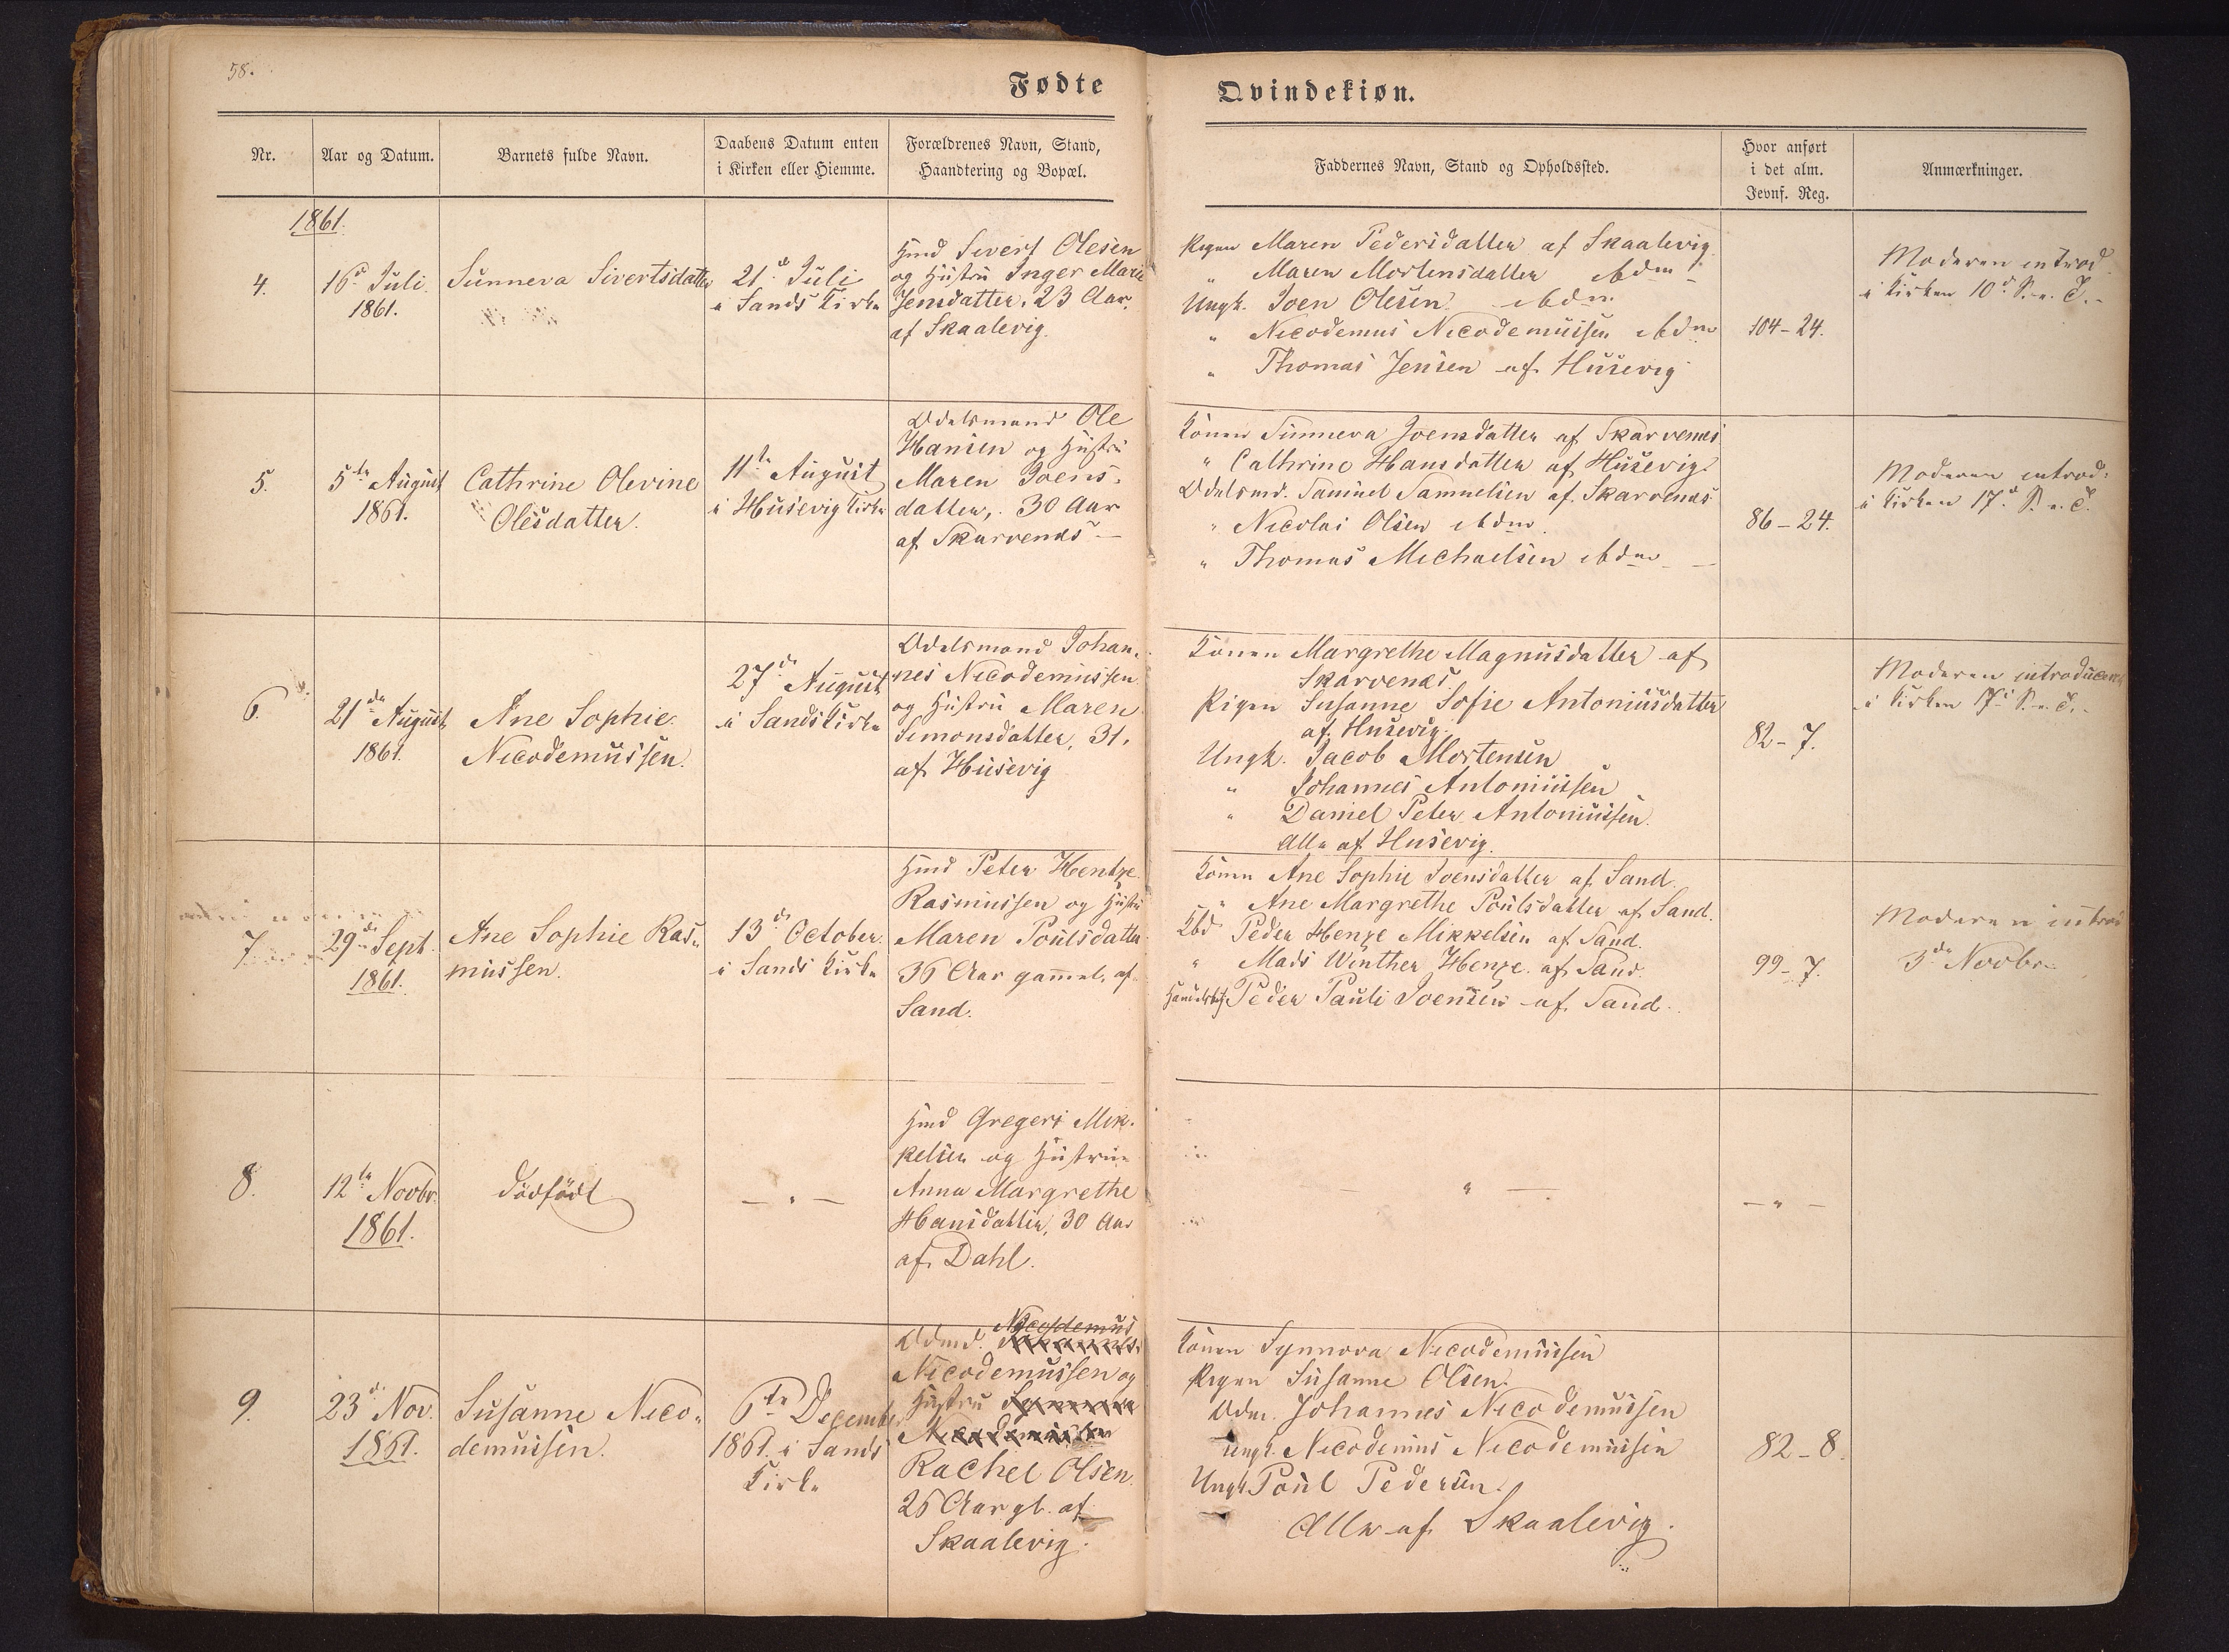 58.
Fødte
Qvindekiøn.
Nr.
Aar og Datum.
Barnets fulde Navn.
Daabens Datum enten
i Kirken eller Hiemme.
Forældrenes Navn, Stand,
Haandtering og Bopæl.
Faddernes Navn, Stand og Opholdssted.
Hvor anført
i det alm.
Jevnf. Reg.
Anmærkninger.
1861.
4.
16d Juli
1861.
Sunneva Sivertsdatter
21d Juli
i Sands Kirke
Hmd Sivert Olesen
og Hustru Inger Marie
Jensdatter, 23 Aar.
af Skaalevig.
Pigen Maren Pedersdatter af Skaalevig.
" Maren Mortensdatter ibdm
Ungk. Joen Olesen ibdm
" Nicodemus Nicodemussen ibdm
" Thomas Jensen af Husevig
104-24.
Moderen introd.
i Kirken 10d S. e. T.
5.
5te August
1861.
Cathrine Olevine
Olesdatter.
11te August
i Husevig Kirke
Odelsmand Ole
Hansen og Hustru
Maren Joens-
datter, 30 Aar
af Skarvenæs
Konen Sunneva Joensdatter af Skarvenæs
" Cathrine Hansdatter af Husevig.
Odelsmd. Samuel Samuelsen af Skarvenæs
" Nicolai Olsen ibdm.
" Thomas Michaelsen ibdm
86-24.
Moderen introd.
i Kirken 17d S. e. T.
6.
21de August
1861.
Ane Sophie
Nicodemussen.
27de August
i Sands Kirke
Odelsmand Johan-
nes Nicodemussen
og Hustru Maren
Simonsdatter, 31,
af Husevig
Konen Margrethe Magnusdatter af
Skarvenæs.
Pigen Susanne Sofie Antoniusdatter
af Husevig.
Ungk. Jacob Mortensen
" Johannes Antoniussen
" Daniel Peter Antoniussen.
Alle af Husevig.
82-7.
Moderen introduceret
i Kirken 17d S. e. T.
7.
29de Sept.
1861.
Ane Sophie Ras-
mussen.
13de October
i Sands Kirke
Hmd Peter Hentze
Rasmussen og Hustru
Maren Poulsdatter
36 Aar gammel, af
Sand.
Konen Ane Sophie Joensdatter af Sand.
" Ane Margrethe Poulsdatter af Sand.
Kbd Peder Henze Mikkelsen af Sand.
" Mads Winther Henze af Sand.
Peder Pauli Joensen af Sand.
99-7.
Moderen introd
3de Novbr.
8.
12te Novbr.
1861.
dødfødt
— " —
Hmd Gregers Mik-
kelsen og Hustrue
Anna Margrethe
Hansdatter, 30 Aar
af Dahl.
— " —
— " —
9.
23de Nov.
1861.
Susanne Nico-
demussen.
6te December
1861. i Sands
Kirke
Nicodemus
Odmd.
Nicodemussen og
Hustru
Nicodemussen
Rachel Olsen
26 Aar gl. af
Skaalevig.
Konen Synnova Nicodemussen
Pigen Susanne Olsen.
Odm. Johannes Nicodemussen
Ungk. Nicodemus Nicodemussen
Ungk Poul Pedersen.
Alle af Skaalevig.
82-8.